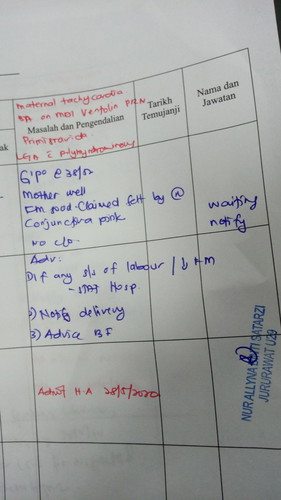 maternal tachycardia
BA on mdi Ventolin PRN
Masalah dan Pengendalian
Tarikh
Temujanji
Nama dan
Jawatan
ak
Primigravida
LGA c polyhydramnios
G1P0 @ 38/52
Mother well
FM good - Claimed felt by (N)
Conjunctiva pink
no c/o.
waiting
notify
Adv:
1) If any s/s of labour / ↓ FM
- STAT Hosp.
2) Notify delivery
3) Advice BF
NUR ALLYNA
SATARZI
JURURAWAT U29
Admit H.A 28/5/2020